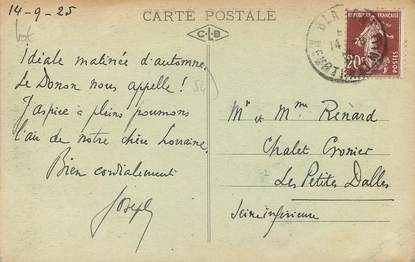 14-9-25
CARTE POSTALE
CLB
Idéale matinée d'automne,
Le Donon nous appelle !
J'aspire à pleins poumons
l'air de notre chère Lorraine.
Bien cordialement
Joseph
Mr et Mme Renard
Chalet Cronier
Les Petites Dalles
Seine inférieure
20c
POSTES